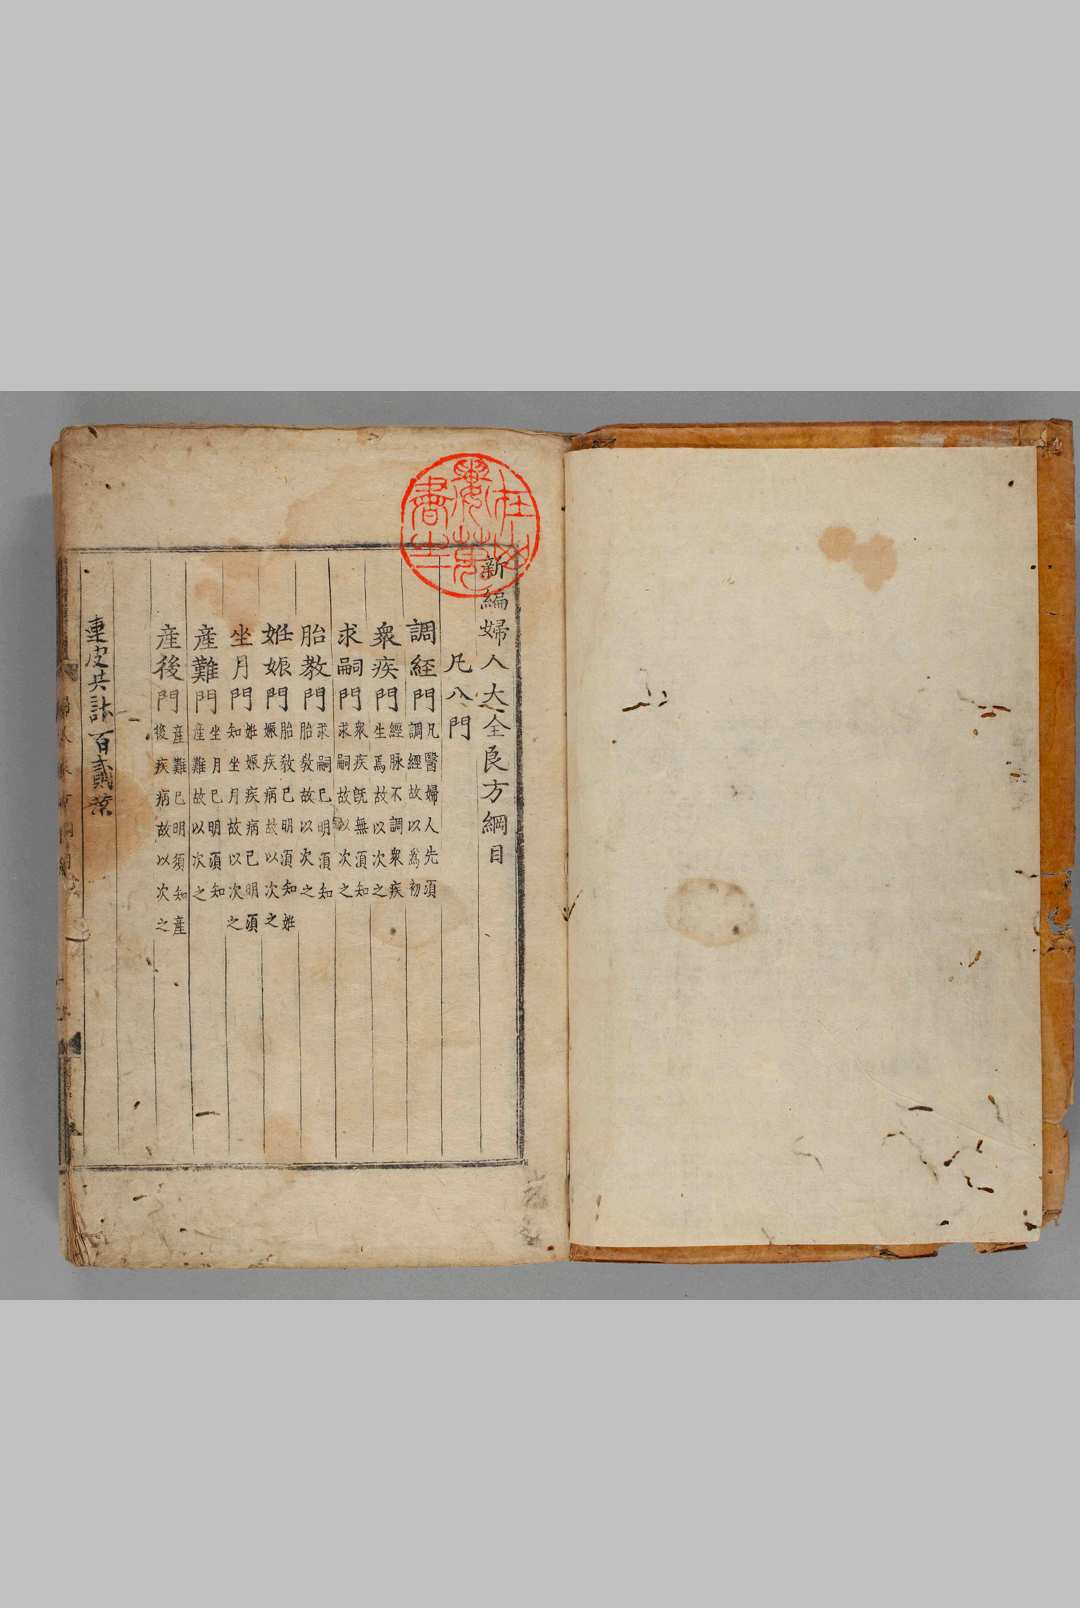 新編婦人大全良方綱目
凡八門
調経門 凡醫婦人先須調經故以爲初
衆疾門 經脉不調衆疾生焉故以次之
求嗣門 衆疾旣無須知求嗣故以次之
胎教門 求嗣已明須知胎教故以次之
姙娠門 胎教已明須知姙娠疾病故以次之
坐月門 姙娠疾病已明須知坐月故以次之
産難門 坐月已明須知産難故以次之
産後門 産難已明須知産後疾病故以次之
連皮共計百貳葉